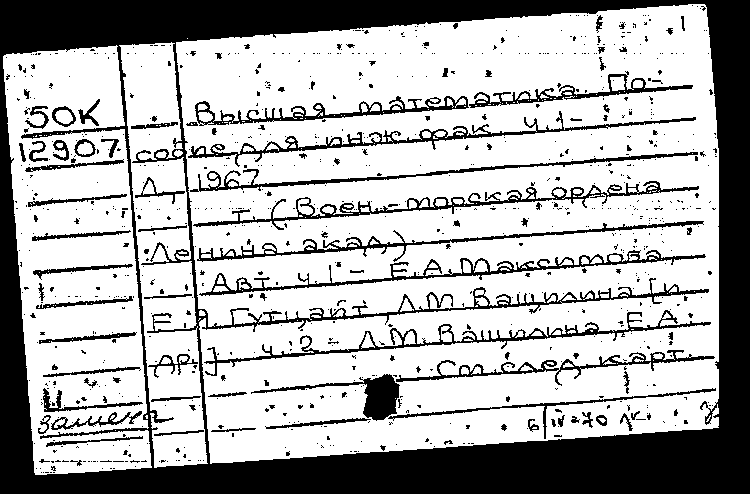 1
50К Высшая математика. По-
12907 собие для инж. фак. ч.1-
Л., 1967
т. (Воен.-морская ордена
Ленина акад.)
Авт. ч.1 - Е.А.Максимова,
Е.Я.Гутцайт, Л.М.Ващилина [и
др.]; ч.2 - Л.М.Ващилина, Е.А.
См.след.карт.
замена
6/IV-70